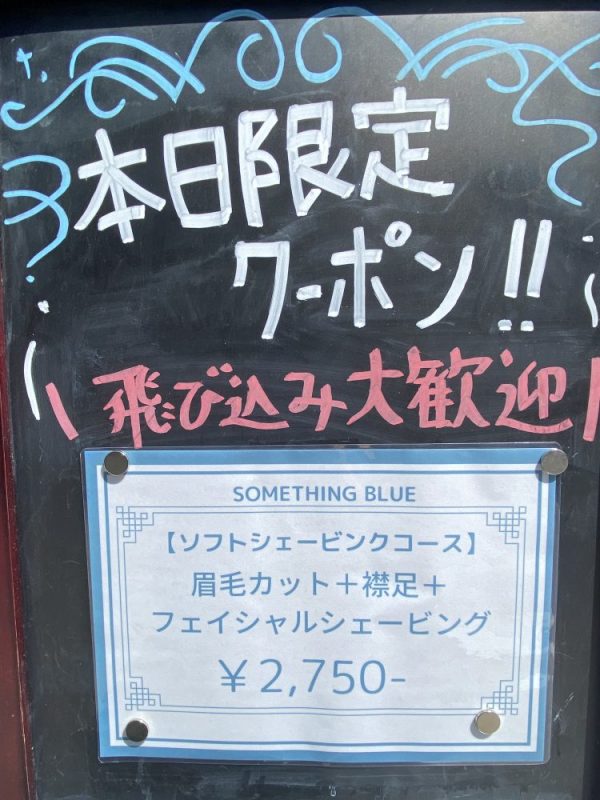 本日限定
クーポン!!
飛び込み大歓迎
SOMETHING BLUE
【ソフトシェービンクコース】
眉毛カット＋襟足＋
フェイシャルシェービング
￥2,750-